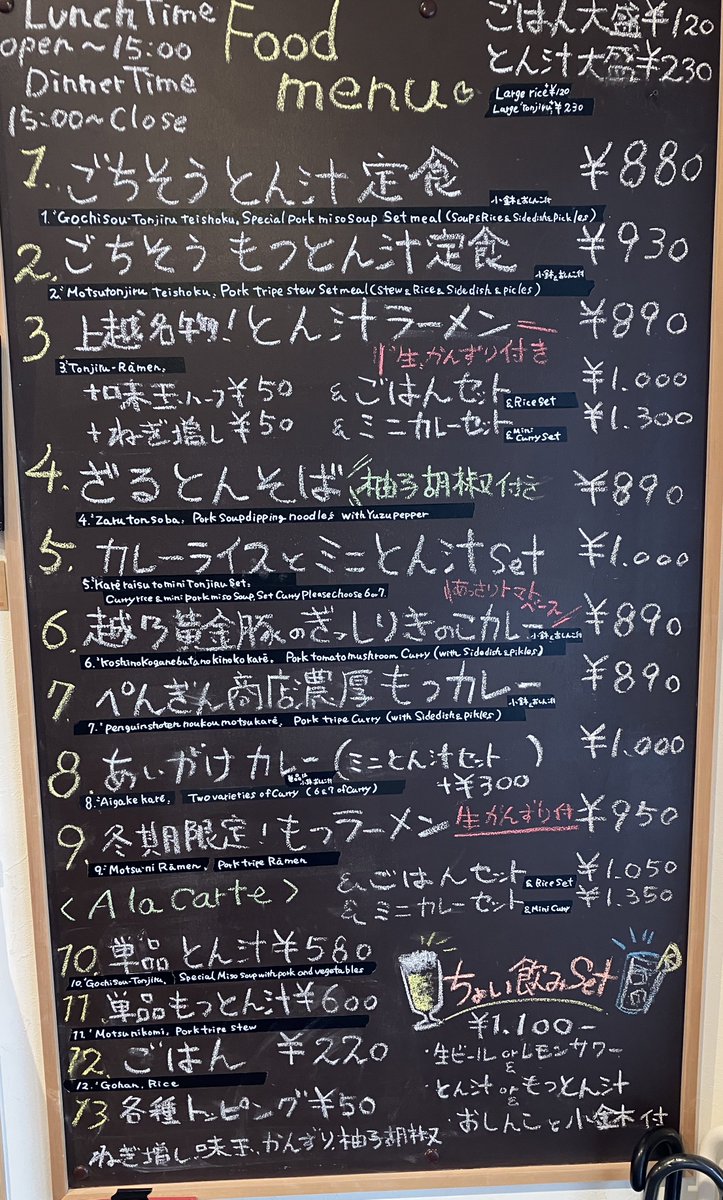 Lunch Time
open～15:00
Dinner Time
15:00～Close
Food
menu
ごはん大盛¥120
とん汁大盛¥230
Large rice¥120
Large Tonjiru¥230
1. ごちそうとん汁定食 ¥880
小鉢&おしんこ付
1.'Gochisou-Tonjiru Teishoku, Special Pork miso Soup Set meal (Soup&Rice&Sidedish&Pickles)
2. ごちそうもつとん汁定食 ¥930
小鉢&おしんこ付
2.'Motsutonjiru Teishoku, Pork Tripe stew Set meal (Stew&Rice&Sidedish&picles)
3 上越名物!とん汁ラーメン ¥890
生かんずり付き
3.'Tonjiru-Rāmen,
+味玉ハーフ¥50 &ごはんセット &Rice Set ¥1.000
+ねぎ増し¥50 &ミニカレーセット &Mini Curry Set ¥1.300
4. ざるとんそば 柚子胡椒付き ¥890
4.'Zaru ton soba, Pork Soup dipping noodles with Yuzu pepper
5. カレーライスとミニとん汁Set ¥1.000
5.'Karē raisu to mini Tonjiru Set,
Curry rice & mini Pork miso Soup Set Curry Please choose 6 or 7
あっさりトマトベース
6. 越乃黄金豚のぎっしりきのこカレー ¥890
小鉢&おしんこ付
6.'Koshinokoganebuta no kinoko karē, Pork tomato mushroom Curry (with Sidedish&pikles)
7 ぺんぎん商店濃厚もつカレー ¥890
小鉢&おしんこ付
7.'penguin shoten noukou motsu karē, Pork tripe Curry (with Sidedish&pikles)
8. あいがけカレー(ミニとん汁セット +¥300) ¥1.000
8.'Aigake karē, Two varieties of Curry (6&7 of Curry)
9. 冬期限定!もつラーメン 生かんずり付 ¥950
9.'Motsuni Rāmen, Pork tripe Rāmen
&ごはんセット &Rice Set ¥1.050
&ミニカレーセット &Mini Curry ¥1.350
<A la carte>
10. 単品とん汁¥580
10.'Gochisou-Tonjiru, Special Miso Soup with pork and vegetables
11 単品もつとん汁¥600
11.'Motsunikomi, Pork tripe stew
12. ごはん ¥220
12.'Gohan, Rice
13 各種トッピング¥50
ねぎ増し、味玉、かんずり、柚子胡椒
ちょい飲みSet
¥1.100-
・生ビール or レモンサワー
&
・とん汁 or もつとん汁
&
・おしんこと小鉢付